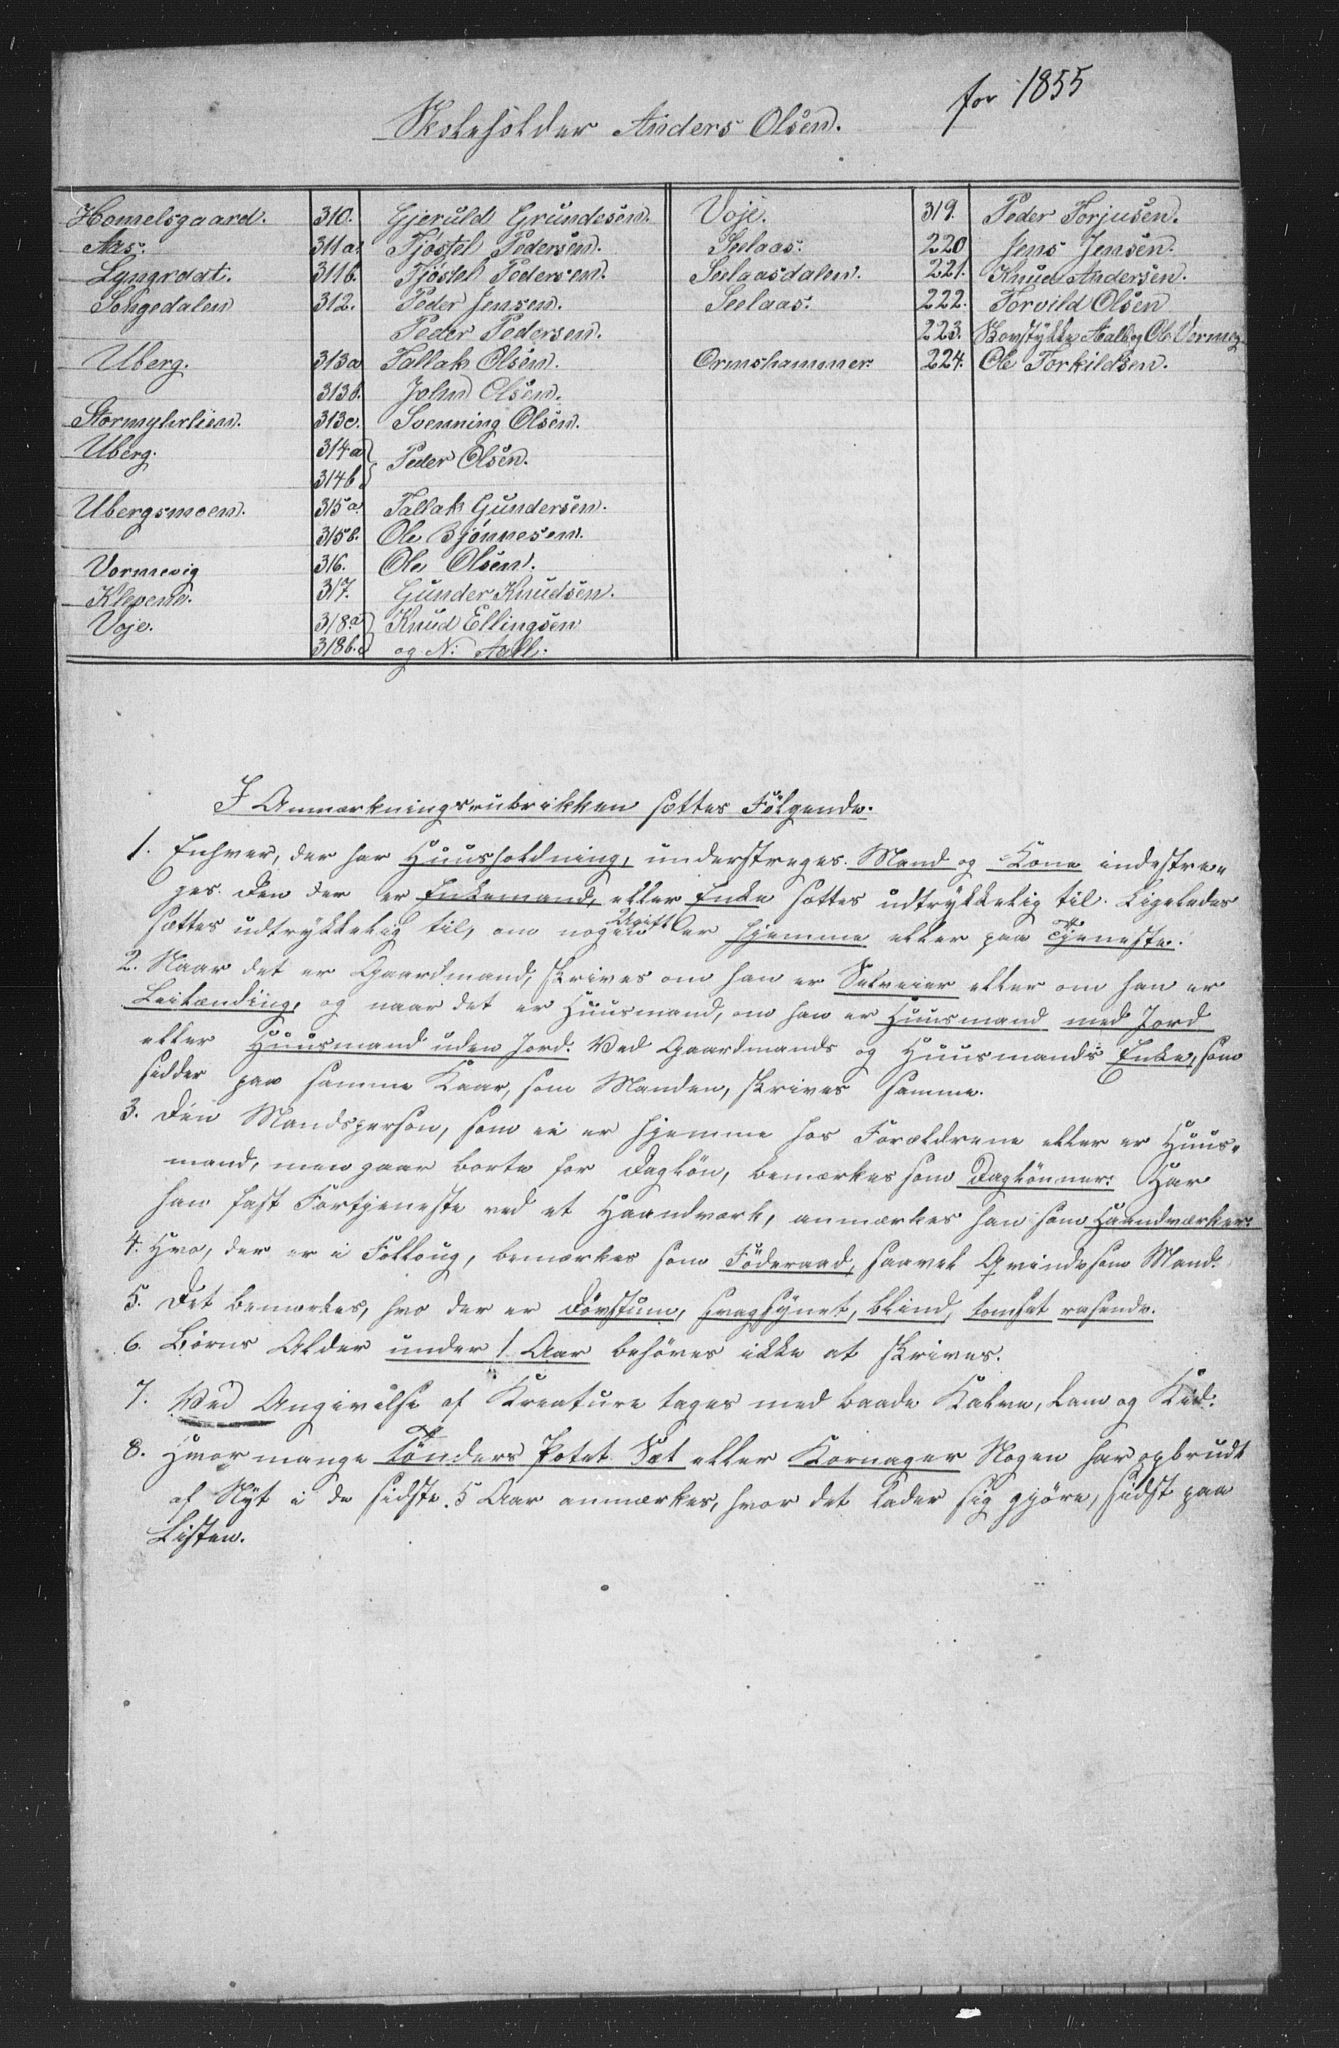 for 1855
Skoleholder Anders Olsen.
Homelsgaard. 310. Gjeruld Grundesen.
Aas. 311a Tjöstel Pedersen.
Lyngrødt. 311b. Tjöstel Pedersen.
Songedalen 312. Peder Jensen.
Peder Pedersen.
Uberg. 313a Tallak Olsen.
313b. John Olsen.
Stormyhrlien. 313c. Svenning Olsen.
Uberg. 314a Peder Olsen.
314b
Ubergsmoen. 315a. Tallak Gundersen.
315b. Ole Bjönnesen.
Vormevig 316. Ole Olsen.
Klepene. 317. Gunder Knudsen.
Voje. 318a Knud Ellingsen
318b. og N: Aall.
Voje. 319. Peder Torjusen.
Selaas. 220 Jens Jensen.
Selaasdalen. 221. Knud Andersen.
Selaas. 222. Torvild Olsen
223. Skovstykke Aall og Ole Vormevig
Ormshammer. 224. Ole Torkildsen.
I Anmærkningsrubrikken sættes Følgende.
1. Enhver, der har Huusholdning, understreges. Mand og Kone indestre-
ges. Den der er Enkemand, eller Enke sættes udtrykkelig til. Ligeledes
sættes udtrykkelig til, om nogen Ugift er hjemme eller paa Tjeneste.
2. Naar det er Gaardmand, skrives om han er Selveier eller om han er
Leilænding, og naar det er Huusmand, om han er Huusmand med Jord
eller Huusmand uden Jord. Ved Gaardmands og Huusmands Enke, som
sidder paa samme Kaar, som Manden, skrives samme.
3. Den Mandsperson, som ei er hjemme hos Forældrene eller er Huus-
mand, men gaar borte for Dagløn, bemærkes som Daglønner. Har
han fast Fortjeneste ved et Haandværk, anmærkes han som Haandværker.
4. Hvo, der er i Følloug, bemærkes som Föderaad, saavel Qvinde som Mand.
5. Det bemærkes, hvo der er Døvstum, svagsynet, blind, tomset rasende.
6. Børns Alder under 1 Aar behøves ikke at skrives.
7. Ved Angivelse af Kreature tages med baade Kalve, Lam og Kid.
8. Hvor mange Tønders Potet Sæt eller Kornager Nogen har opbrudt
af Nyt i de sidste 5 Aar anmærkes, hvor det lader sig gjöre, sidst paa
Listen.